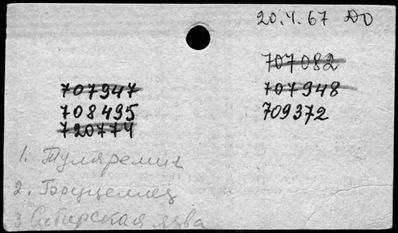 20.4.67 До
707082
707947
707948
708495
709372
720774
1. Туляремия
2. Бруцеллез
3 Сибирская язва